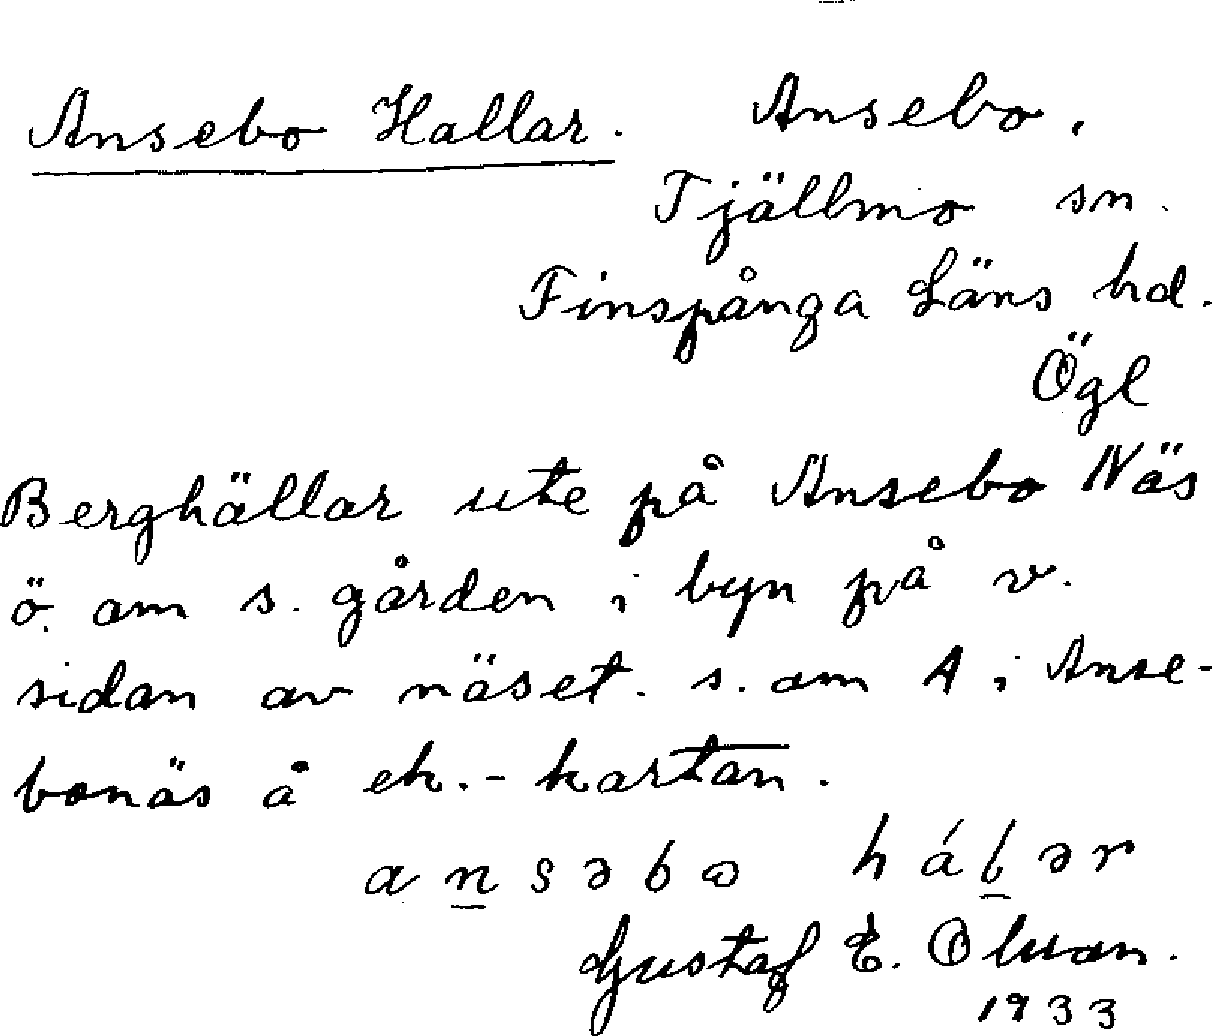 Ansebo Hallar. Ansebo,
Tjällmo sn.
Finspånga Läns hd.
Ögl
Berghällar ute på Ansebo Näs
ö. om s. gården i byn på v.
sidan av näset. s. om A i Anse-
bonäs å ek.-kartan.
Gustaf E.
1933